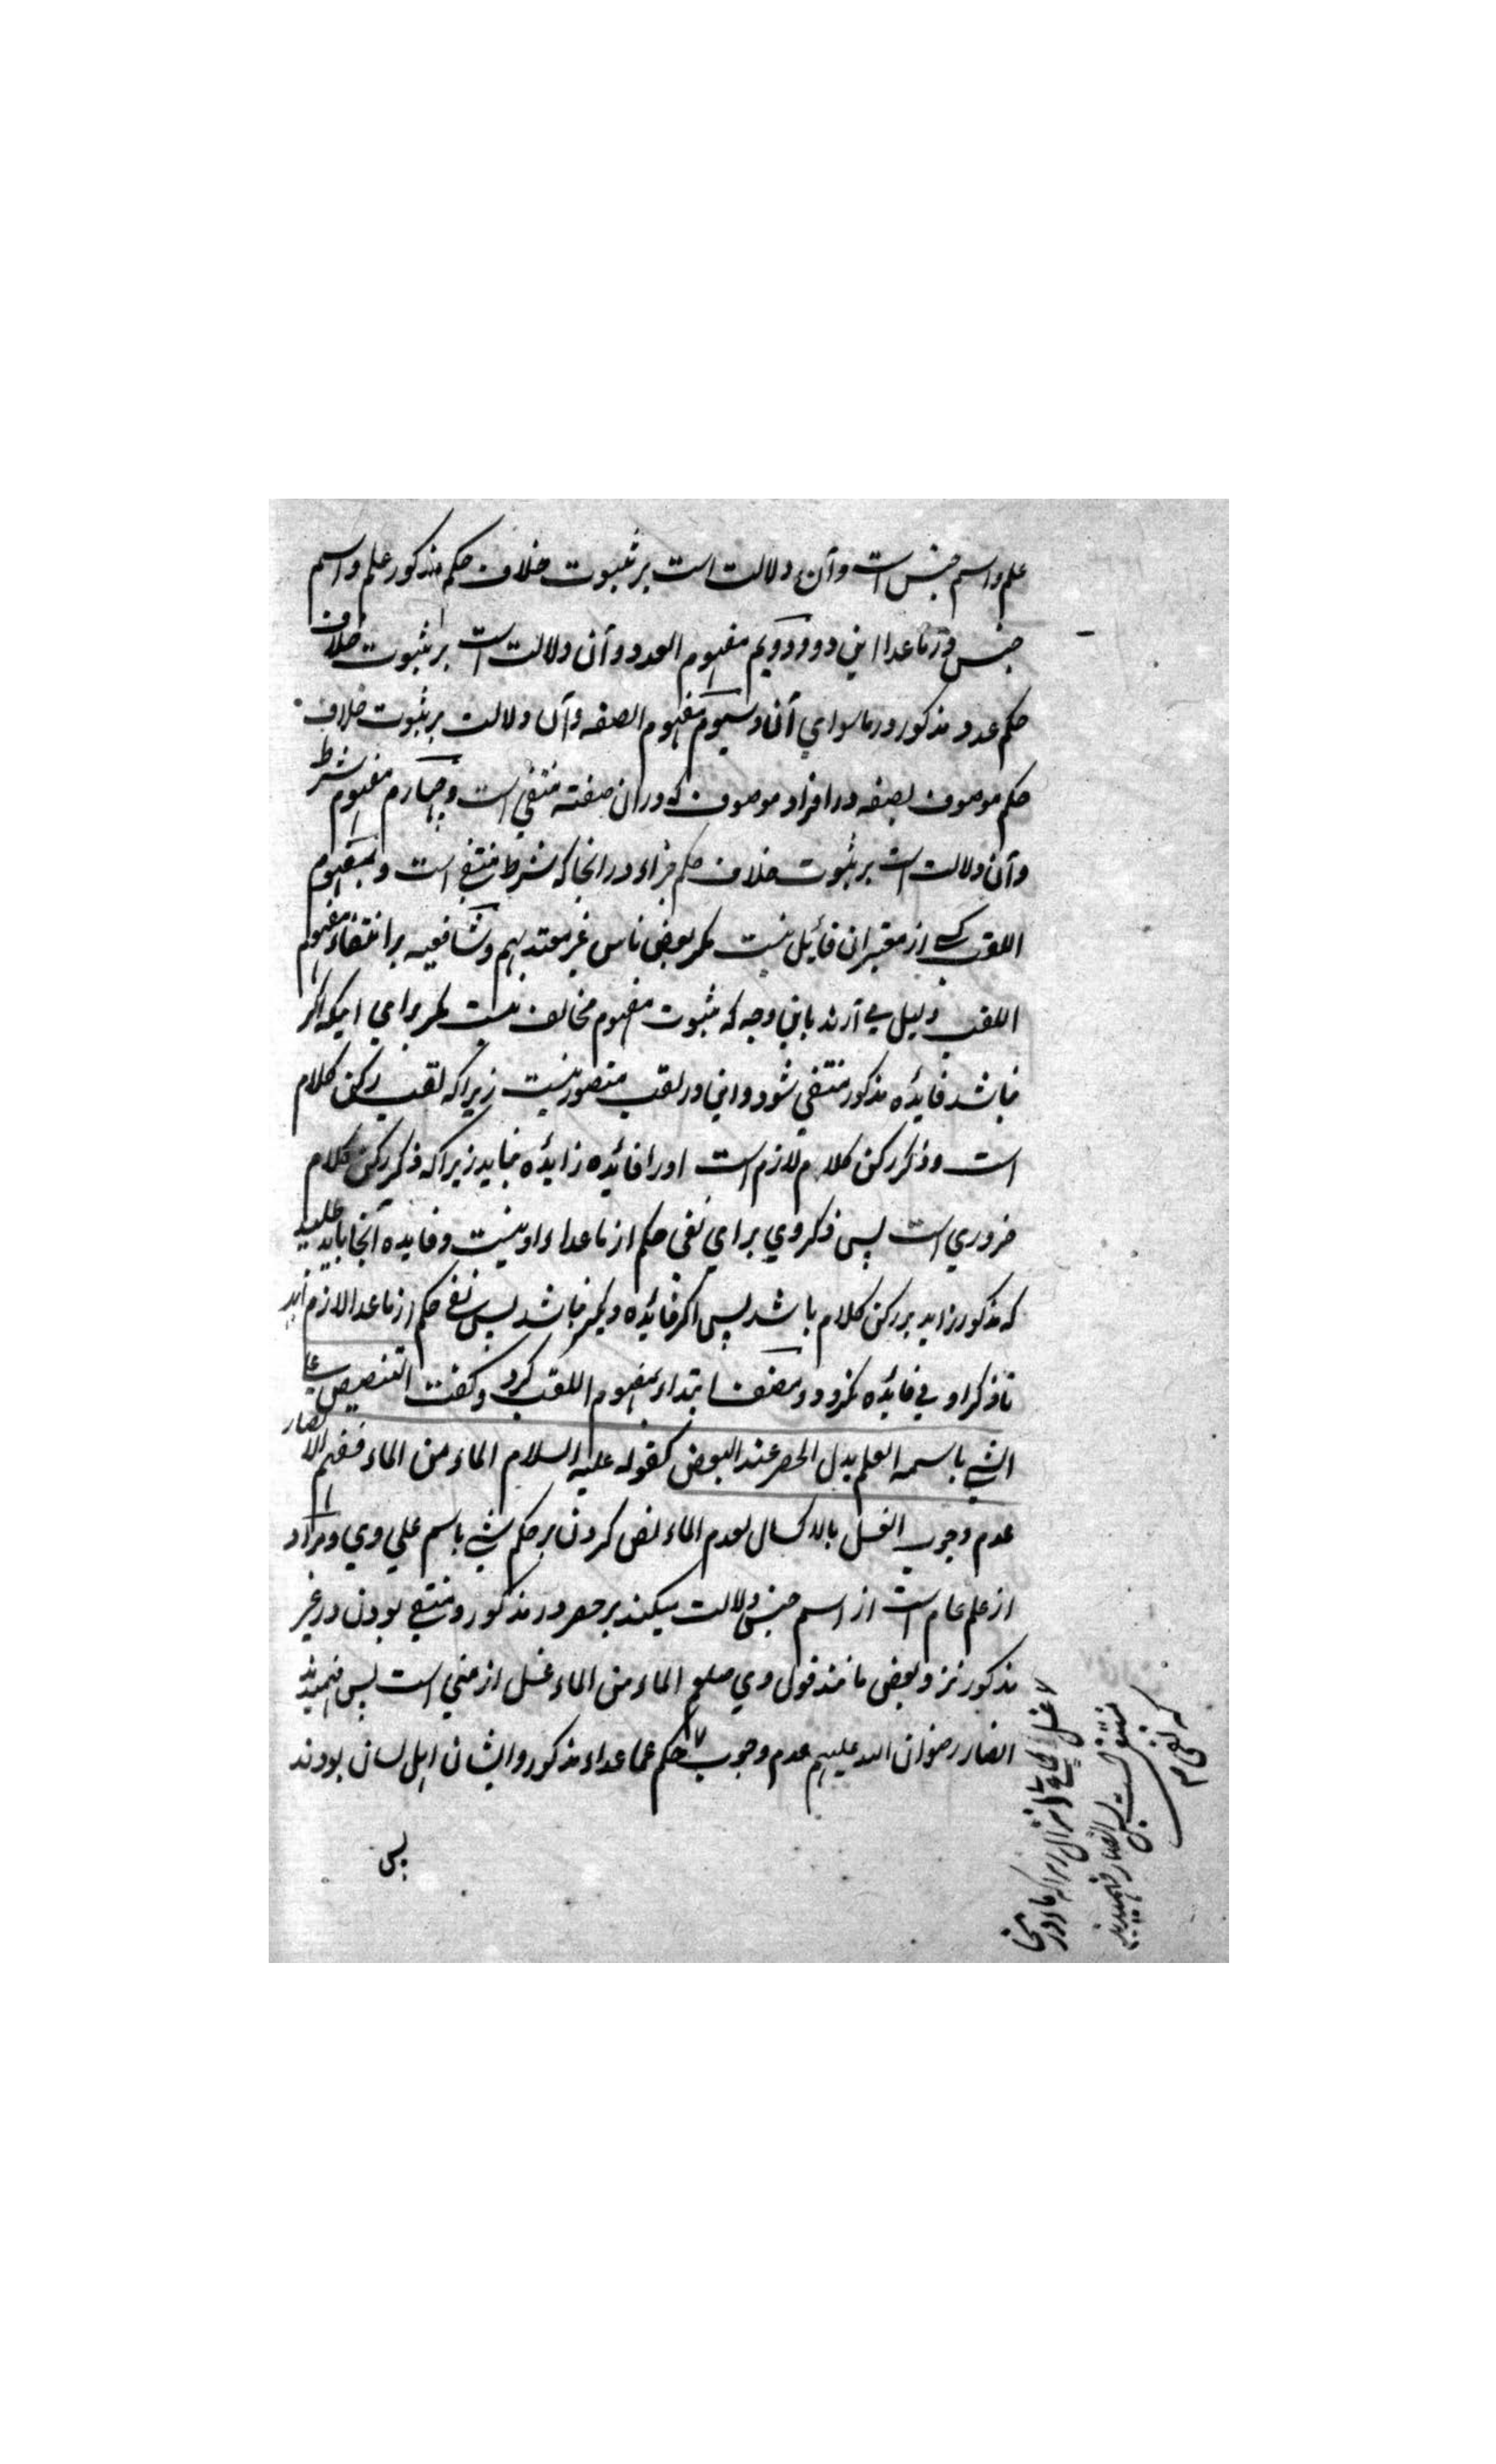 علم و اسم جنس است و آن دلالت است بر ثبوت خلاف حکم مذکور علم و اسم
جنس در ما عدا این دو و دویم مفهوم العدد و آن دلالت است بر ثبوت خلاف
حکم عدد مذکور در ماسوای آن و سیوم مفهوم الصفه و آن دلالت بر ثبوت خلاف
حکم موصوف بصفه در افراد موصوف که در آن صفته منتفی است و چهارم مفهوم شرط
و آن دلالت است بر ثبوت خلاف حکم جزاء در انجا که شرط منتفی است و بمفهوم
اللقب کسے از معتبران قائیل نیست مگر بعض ناس غیر معتد بهم و شافعیه بر انتفاء مفهوم
اللقب دلیل می آرند باین وجه که ثبوت مفهوم مخالف نیست مگر برای اینکه اگر
نباشد فائده مذکور منتفی شود و این در لقب متصور نیست زیرا که لقب رکن کلام
است و ذکر رکن کلام لازم است اورا فائده زایده نباید زیرا که ذکر رکن کلام
ضروری است پس ذکر وی برای نفی حکم از ما عداء او نیست و فایده آنجا باید طلبید
که مذکور زاید بر رکن کلام باشد پس اگر فائده دیگر نباشد پس نفی حکم از ما عدا لازم آید
تا ذکر او بی فائده نگردد و مصنف ابتداء بمفهوم اللقب کرد و گفت التنصیص علی
الشئ باسمه العلم یدل الحصر عند البعض کقوله علیه السلام الماء من الماء ففهم الانصار
عدم وجوب الغسل بالاکسال لعدم الماء نص کردن بر حکم شئ باسم علمی وی و مراد
از علم عام است از اسم جنس دلالت میکند بر حصر در مذکور و منتفی بودن در غیر
مذکور نزد بعض مانند قول وی صلعم الماء من الماء غسل از منی است پس فهمیدند
انصار رضوان الله علیهم عدم وجوب حکم عما عداء مذکور و ایشان اهل لسان بودند
پس